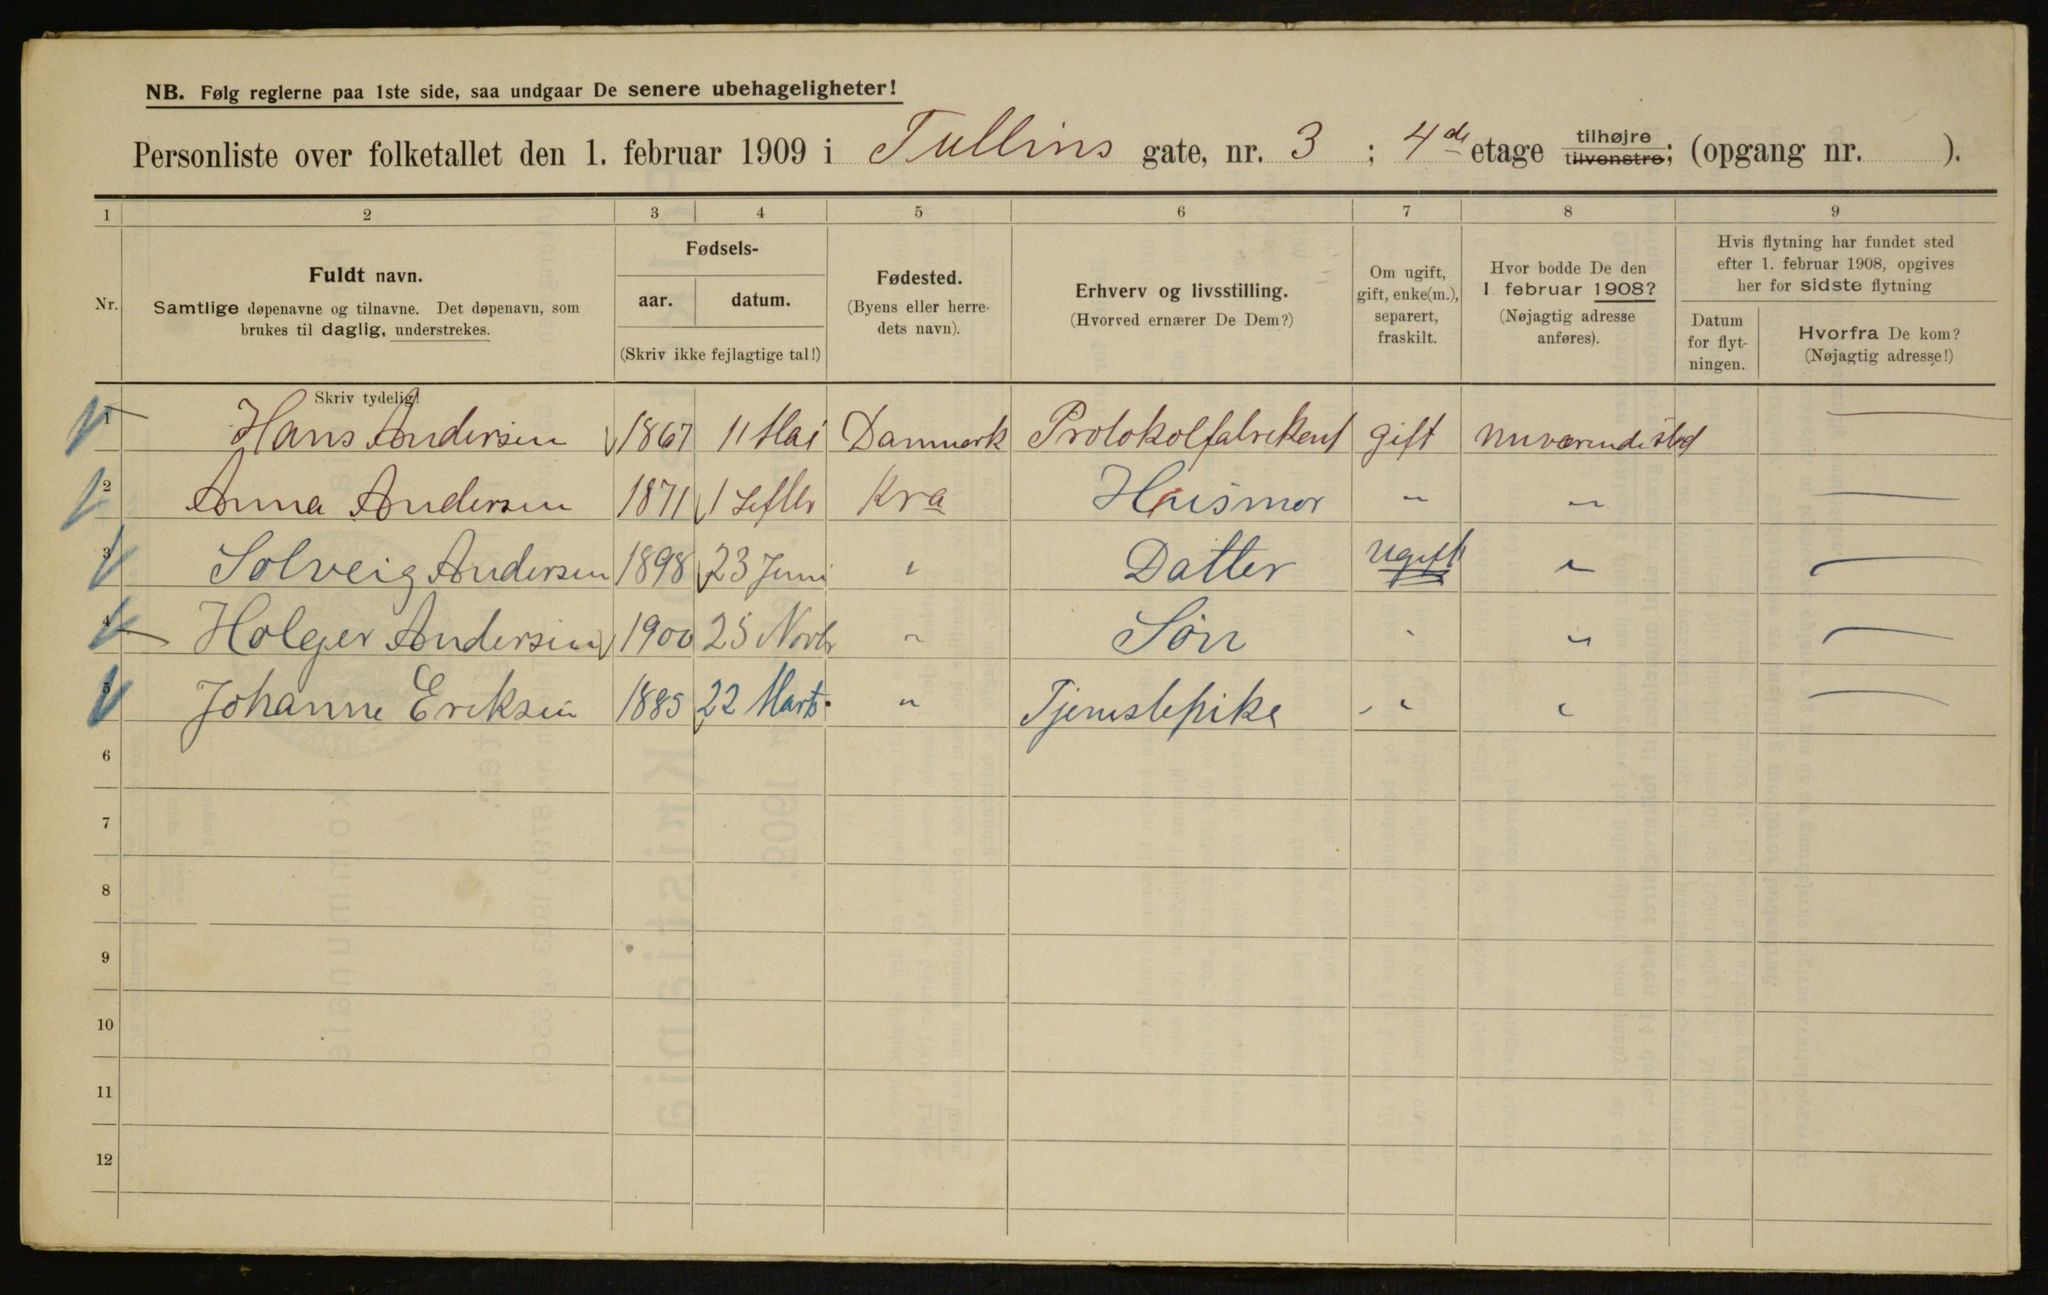 NB. Følg reglerne paa 1ste side, saa undgaar De senere ubehageligheter!
Personliste over folketallet den 1. februar 1909 i Tullins gate, nr. 3 ; 4de etage tilhøjre tilvenstre; (opgang nr. ).
1 2 3 4 5 6 7 8 9
Nr.
Fuldt navn.
Samtlige døpenavne og tilnavne. Det døpenavn, som
brukes til daglig, understrekes.
Fødsels-
aar. datum.
(Skriv ikke fejlagtige tal!)
Fødested.
(Byens eller herre-
dets navn).
Erhverv og livsstilling.
(Hvorved ernærer De Dem?)
Om ugift,
gift, enke(m.),
separert,
fraskilt.
Hvor bodde De den
1. februar 1908?
(Nøjagtig adresse
anføres).
Hvis flytning har fundet sted
efter 1. februar 1908, opgives
her for sidste flytning
Datum
for flyt-
ningen.
Hvorfra De kom?
(Nøjagtig adresse!)
Skriv tydelig!
1 Hans Andersen 1867 11 Mai Danmark Protokolfabrikant gift nuværende sted —
2 Anna Andersen 1871 1 Septbr Kra Husmor " " —
3 Solveig Andersen 1898 23 Juni " Datter ugift " —
4 Holger Andersen 1900 25 Novbr " Søn " " —
5 Johanne Eriksen 1885 22 Marts. " Tjenstepike " " —
6
7
8
9
10
11
12